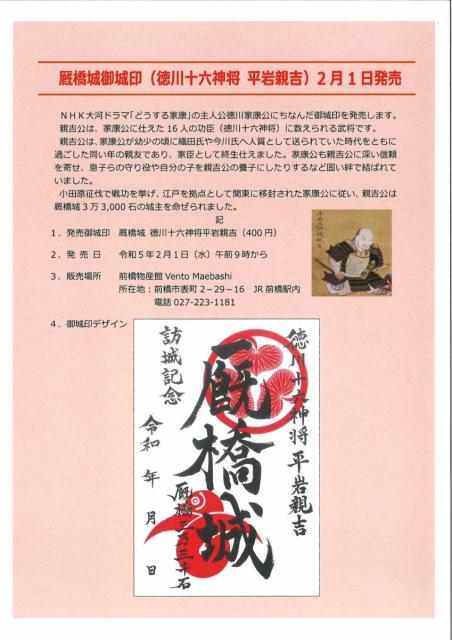 厩橋城御城印（徳川十六神将 平岩親吉）２月１日発売
ＮＨＫ大河ドラマ「どうする家康」の主人公徳川家康公にちなんだ御城印を発売します。
親吉公は、家康公に仕えた 16 人の功臣（徳川十六神将）に数えられる武将です。
親吉公は、家康公が幼少の頃に織田氏や今川氏へ人質として送られていた時代をともに
過ごした同い年の親友であり、家臣として終生仕えました。家康公も親吉公に深い信頼
を寄せ、息子らの守り役や自分の子を親吉公の養子にしたりするなど固い絆で結ばれて
いました。
小田原征伐で戦功を挙げ、江戸を拠点として関東に移封された家康公に従い、親吉公は
厩橋城３万 3,000 石の城主を命ぜられました。
記
１．発売御城印　厩橋城 徳川十六神将平岩親吉（400 円）
２．発 売 日　令和５年２月１日（水）午前９時から
３．販売場所　前橋物産館 Vento Maebashi
所在地：前橋市表町２－29－16　JR 前橋駅内
電話 027-223-1181
４．御城印デザイン
徳川十六神将 平岩親吉
厩橋城
厩橋三万三千石
訪城記念
令和 年 月 日